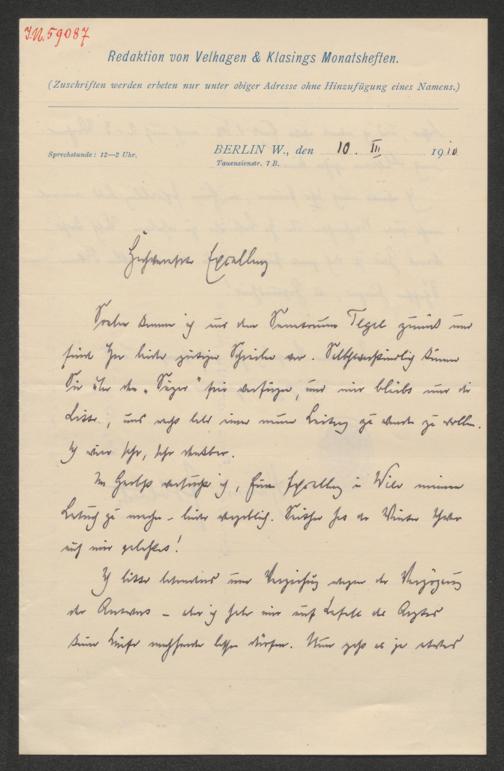 J.N. 59087
Redaktion von Velhagen & Klasings Monatsheften.
(Zuschriften werden erbeten nur unter obiger Adresse ohne Hinzufügung eines Namens.)
Sprechstunde: 12—2 Uhr.
BERLIN W., den 10. III 1910
Tauenzienstr. 7 B.
Hochverehrte Exzellenz
Soeben komme ich aus dem Sanatorium Tegel zurück und
finde Ihr gütiges Schreiben vor. Selbstverständlich können
Sie über den „Sänger" frei verfügen, und mir bleibt nur die
Bitte, uns recht bald einen neuen Beitrag zu zu wollen.
Ich wäre sehr, sehr dankbar.
Im Herbst versuchte ich, Euer Exzellenz in Wien meinen
Besuch zu machen – leider vergeblich. Seither hat der Winter schwer
auf mir gelastet!
Ich bitte um Verzeihung wegen der Verzögerung
der Antwort – aber ich habe mir auf Befehl des Arztes
keine Briefe nachsenden lassen dürfen. Nun geht es ja etwas